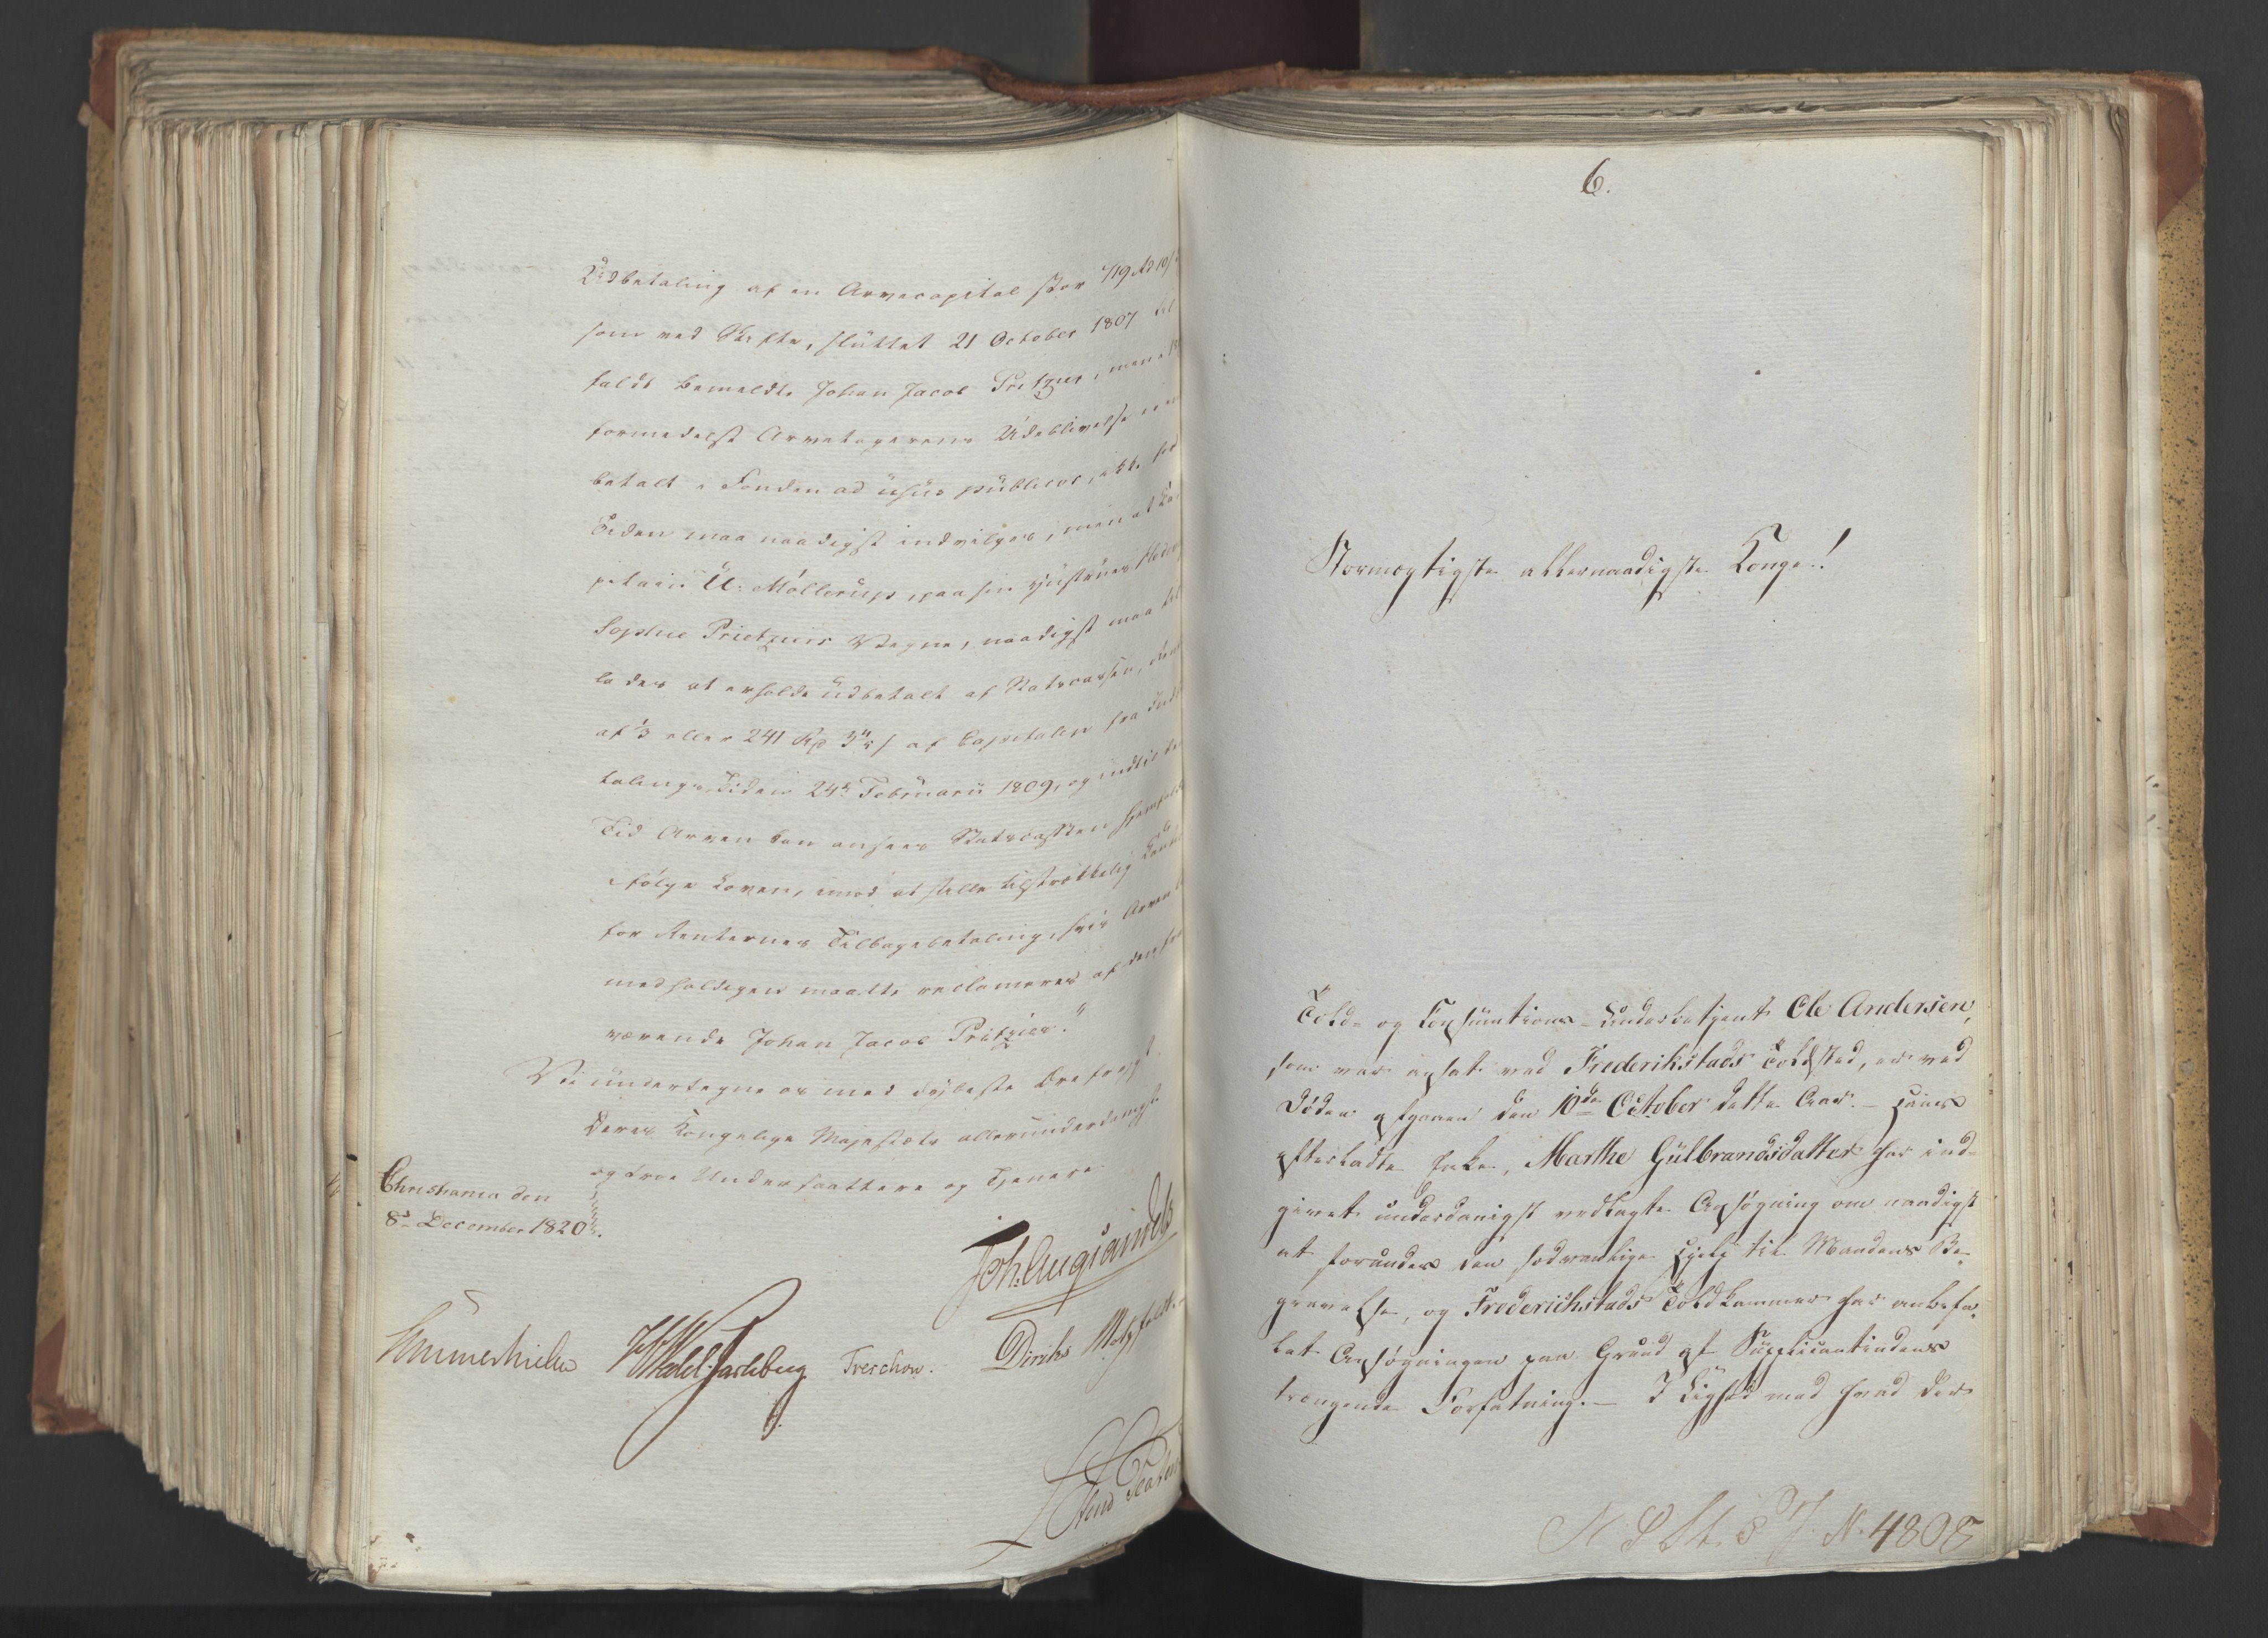 Udbetaling af en Arvecapital stor 719 Rd 10 s
som ved Skifte, sluttet 21 October 1807 til
faldt bemeldte Johan Jacob Pritzier, men
formedelst Arvetagerens Udeblivelse er
betalt i Fonden ad usus publicos, ikke for
Tiden maa naadigst indvilges, men at Ca
pitain U. Møllerup, paa sin Hustrues
Sophie Pritziers Vegne, naadigst maa til
lades at erholde udbetalt af Statscassen,
af 1/3 eller 241 Rd s af Capitalen fra Indbe
talings Tiden 24de Februarii 1809, og indtil den
Tid Arven kan ansees Statscassen hjemfalden
ifølge Loven, imod at stille tilstrækkelig
for Renternes Tilbagebetaling, hvis Arven
medholdigen maatte reclameres af den fra
værende Johan Jacob Pritzier."
Vi undertegne os med dybeste Ærefrygt
Deres Kongelige Majestæts allerunderdanigste
og troe Undersaattere og Tjenere
Christiania den
8de December 1820.
Joh. Aug. Sandels
Sommerhielm HWedel Jarlsberg Treschow. Diriks Motzfeldt
6.
Stormægtigste allernaadigste Konge!
Told- og Consumtions-Underbetjent Ole Andersen,
som var ansat ved Frederikstads Toldsted, er ved
Døden afgaaen den 10de October dette Aar. - Hans
efterladte Enke, Marthe Gulbrandsdatter har ind-
givet underdanigst vedlagte Ansøgning om naadigst
at forundes den sædvanlige Hjelp til Mandens Be-
gravelse, og Frederichstads Toldkammer har anbefa-
let Ansøgningen paa Grund af Supplicantindens
trængende Forfatning. - I Lighed med hvad der
N. 4808